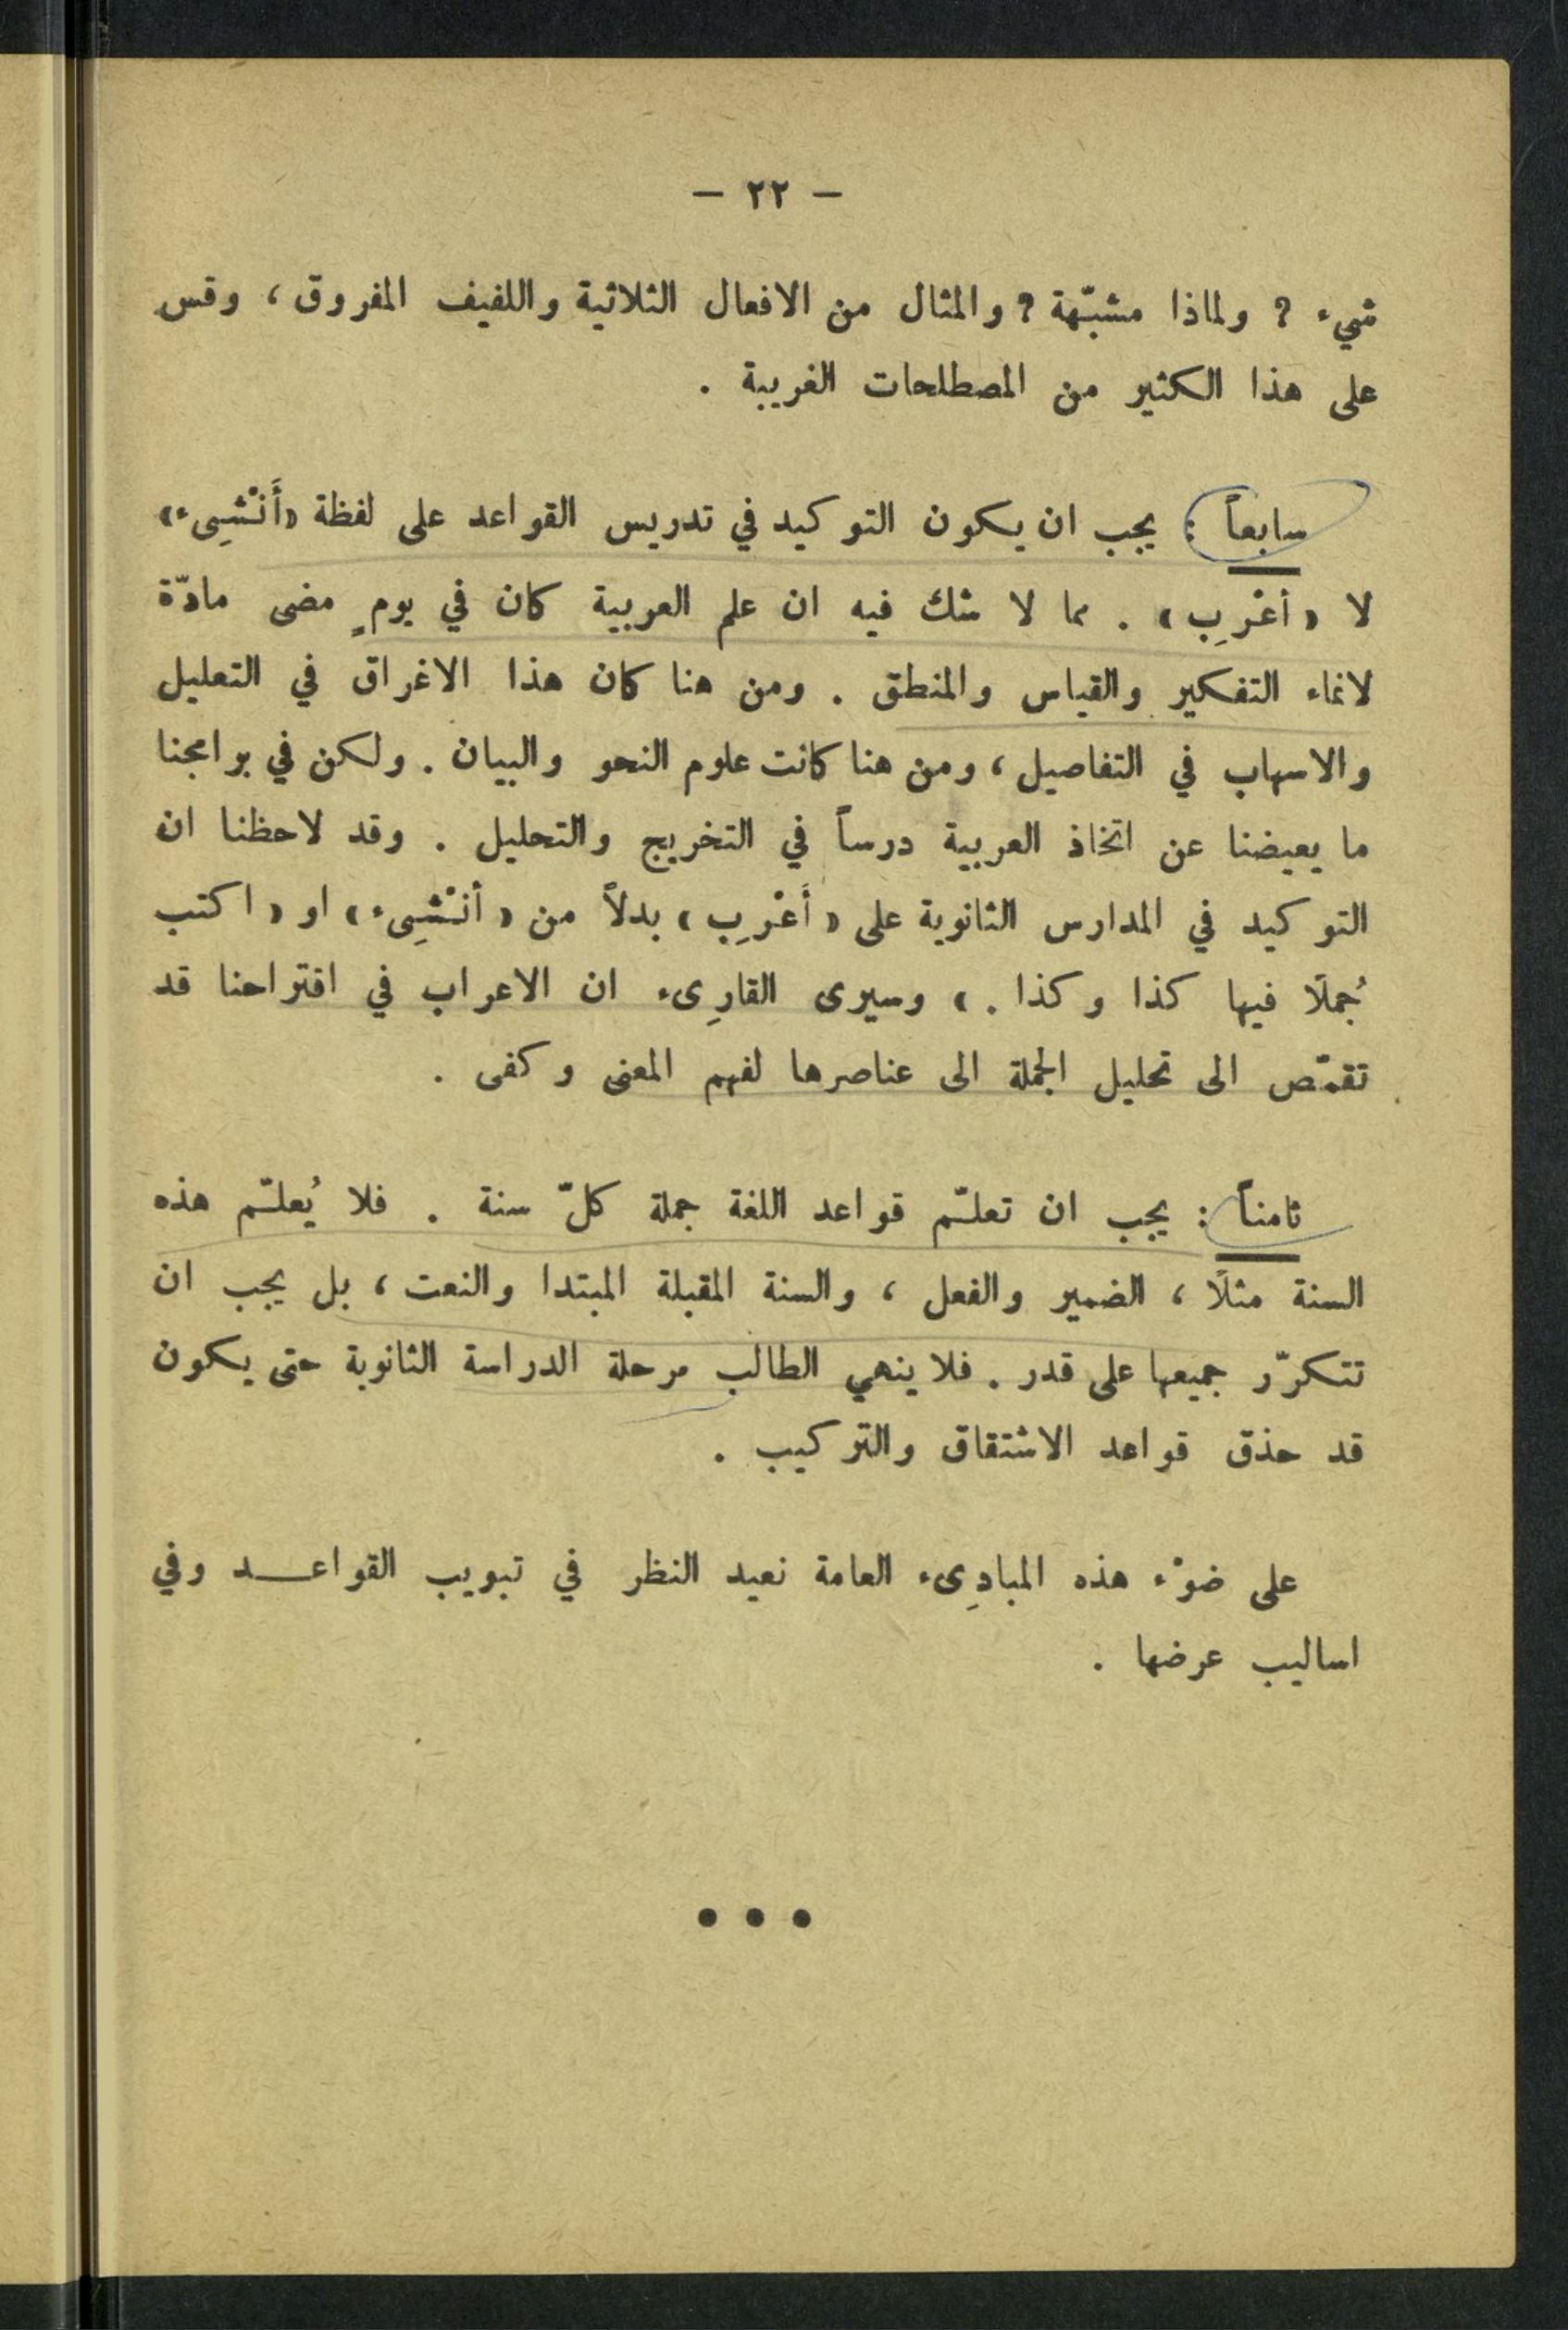 — ٢٢ —
شيء ? ولماذا مشبّهة ? والمثال من الافعال الثلاثية واللفيف المفروق ، وقس
على هذا الكثير من المصطلحات الغريبة .
سابعاً : يجب ان يكون التوكيد في تدريس القواعد على لفظة «أَنْشِىء»
لا « أعْرِب » . مما لا شك فيه ان علم العربية كان في يومٍ مضى مادّة
لانماء التفكير والقياس والمنطق . ومن هنا كان هذا الاغراق في التعليل
والاسهاب في التفاصيل ، ومن هنا كانت علوم النحو والبيان . ولكن في برامجنا
ما يعيضنا عن اتخاذ العربية درساً في التخريج والتحليل . وقد لاحظنا ان
التوكيد في المدارس الثانوية على « أَعْرِب » بدلاً من « أنْشِىء » او « اكتب
جُملًا فيها كذا وكذا . » وسيرى القارِىء ان الاعراب في اقتراحنا قد
تقمّص الى تحليل الجملة الى عناصرها لفهم المعنى وكفى .
ثامناً : يجب ان تعلّم قواعد اللغة جملة كلّ سنة . فلا يُعلّم هذه
السنة مثلًا ، الضمير والفعل ، والسنة المقبلة المبتدا والنعت ، بل يجب ان
تتكرّر جميعها على قدر . فلا ينهي الطالب مرحلة الدراسة الثانوية حتى يكون
قد حذق قواعد الاشتقاق والتركيب .
على ضوْء هذه المبادِىء العامة نعيد النظر في تبويب القواعـــد وفي
اساليب عرضها .
• • •